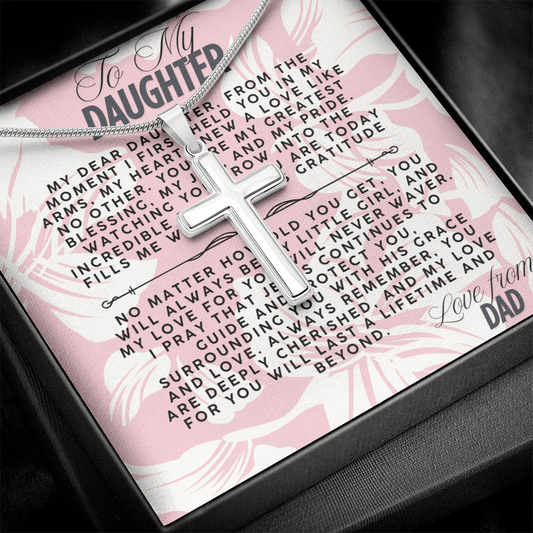 To My
DAUGHTER
MY DEAR DAUGHTER, FROM THE
MOMENT I FIRST HELD YOU IN MY
ARMS, MY HEART KNEW A LOVE LIKE
NO OTHER. YOU ARE MY GREATEST
BLESSING, MY JOY, AND MY PRIDE.
WATCHING YOU GROW INTO THE
INCREDIBLE YOU ARE TODAY
FILLS ME GRATITUDE
NO MATTER HOW OLD YOU GET, YOU
WILL ALWAYS BE MY LITTLE GIRL, AND
MY LOVE FOR YOU WILL NEVER WAVER.
I PRAY THAT JESUS CONTINUES TO
GUIDE AND PROTECT YOU,
SURROUNDING YOU WITH HIS GRACE
AND LOVE, ALWAYS REMEMBER, YOU
ARE DEEPLY CHERISHED, AND MY LOVE
FOR YOU WILL LAST A LIFETIME AND
BEYOND.
Love from
DAD